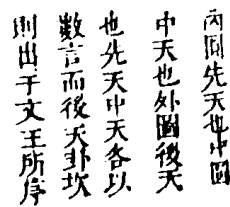 內圖先天也中圖
中天也外圖後天
也先天中天各以
數言而後天卦次
則出于文王所序